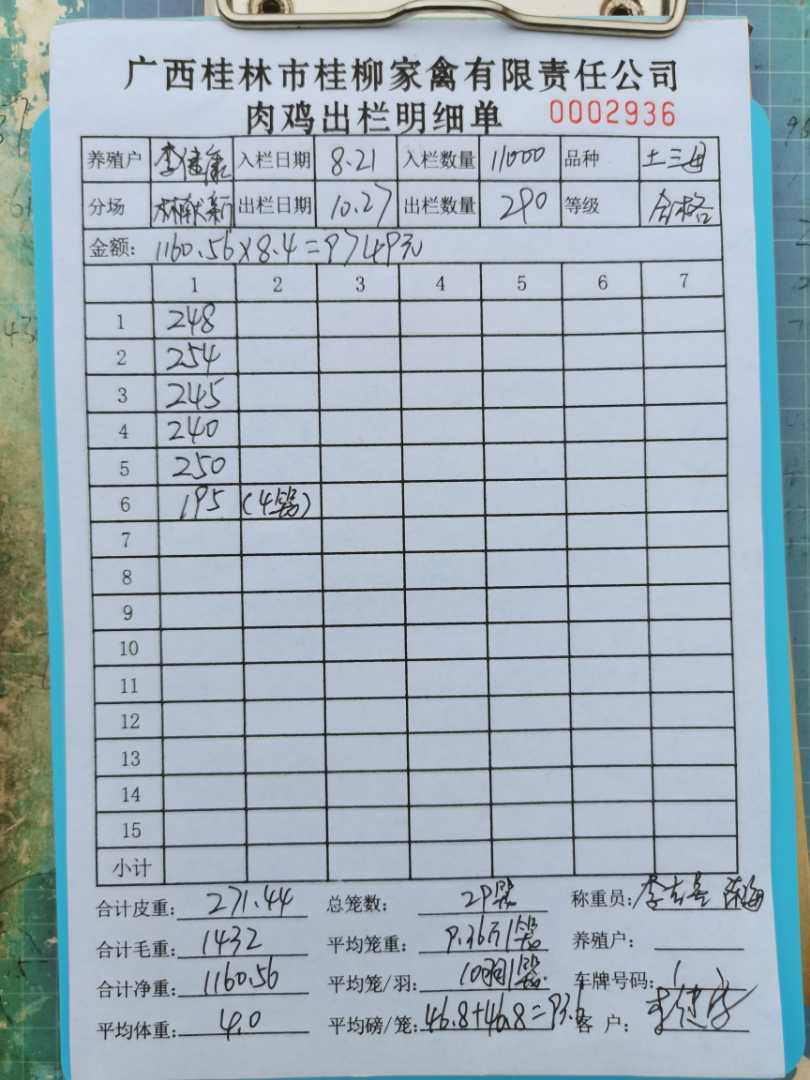 广西桂林市桂柳家禽有限责任公司
肉鸡出栏明细单 0002936
养殖户 李健康 入栏日期 8.21 入栏数量 11000 品种 土三母
分场 林献新 出栏日期 10.27 出栏数量 290 等级 合格
金额: 1160.56×8.4=9749元
1 2 3 4 5 6 7
1 248
2 254
3 245
4 240
5 250
6 195 (4笼)
7
8
9
10
11
12
13
14
15
小计
合计皮重: 271.44 总笼数: 29笼 称重员:
合计毛重: 1432 平均笼重: 9.36斤/笼 养殖户:
合计净重: 1160.56 平均笼/羽: 10羽/笼 车牌号码:
平均体重: 4.0 平均磅/笼: 46.8+46.8=93.6 客户: 李健康